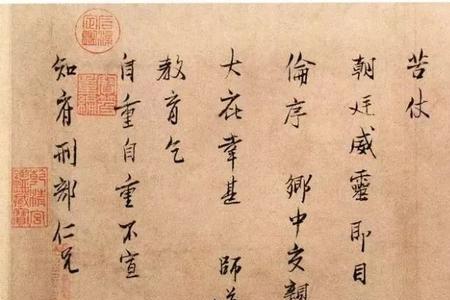 苦仗
朝廷威靈即目
倫序 鄉中交親
大庇幸甚 師
教育乞
自重自重不宣
知府刑部仁兄
乾清宮
鑒藏寶